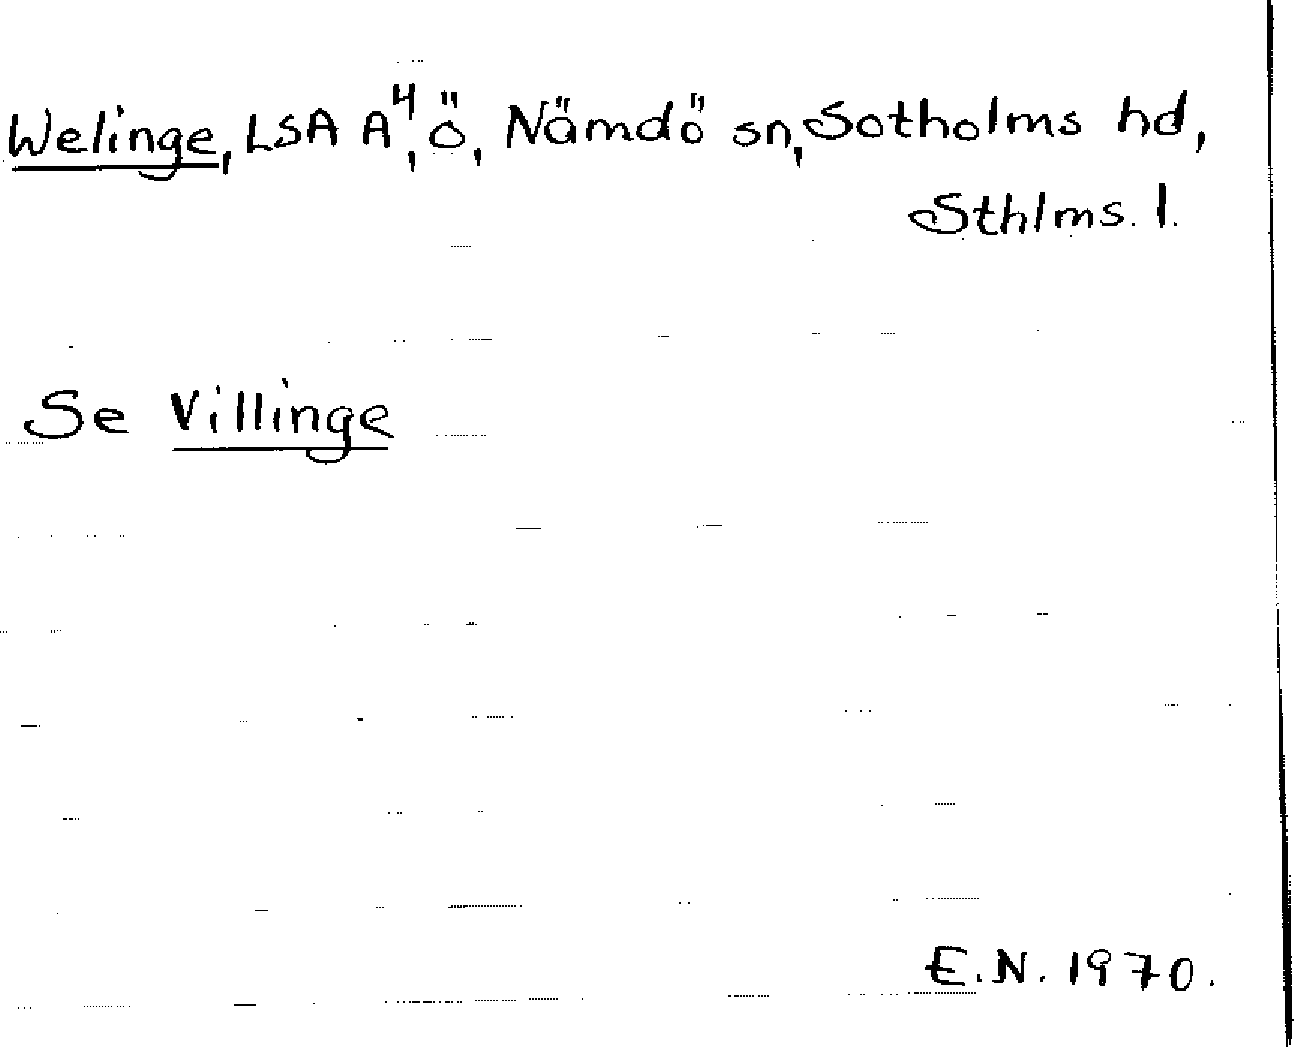 Welinge, LSA A⁴, ö, Nämdö sn, Sotholms hd,
Sthlms. l.
Se Villinge
E.N. 1970.